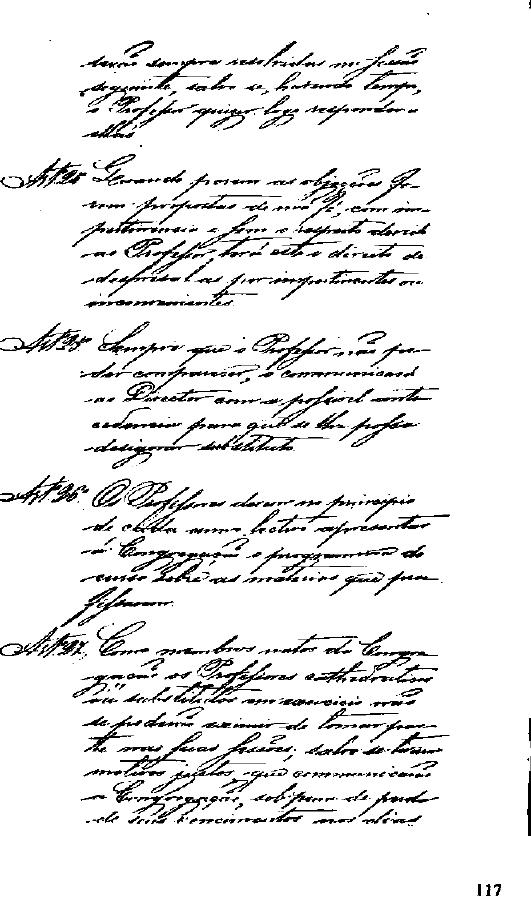 serão sempre resolvidas na sessão
seguinte, salvo se, havendo tempo,
o Professor quizer logo responder a
ellas.
Artº 24 Quando porem as objecções fo-
rem propostas de má fé, com im-
pertinencia e sem o respeito devido
ao Professor, terá este o direito de
despresal-as por impertinentes ou
inconvenientes.
Artº 25. Sempre que o Professor não po-
der comparecer, o communicará
ao Director com a possivel ante
cedencia para que se lhe possa
designar substituto.
Artº 26º Os Professores devem no principio
de cada anno lectivo apresentar
á Congregação o programma do
curso sobre as materias que pro
fessarem.
Artº 27. Como membros natos da Congre
gação os Professores cathedraticos
ou substitutos em exercicio não
se poderão eximir de tomar par-
te nas suas sessões, salvo se terem
motivos justos, que communicarão
a Congregação, sob pena de perda
de seus vencimentos nos dias
117